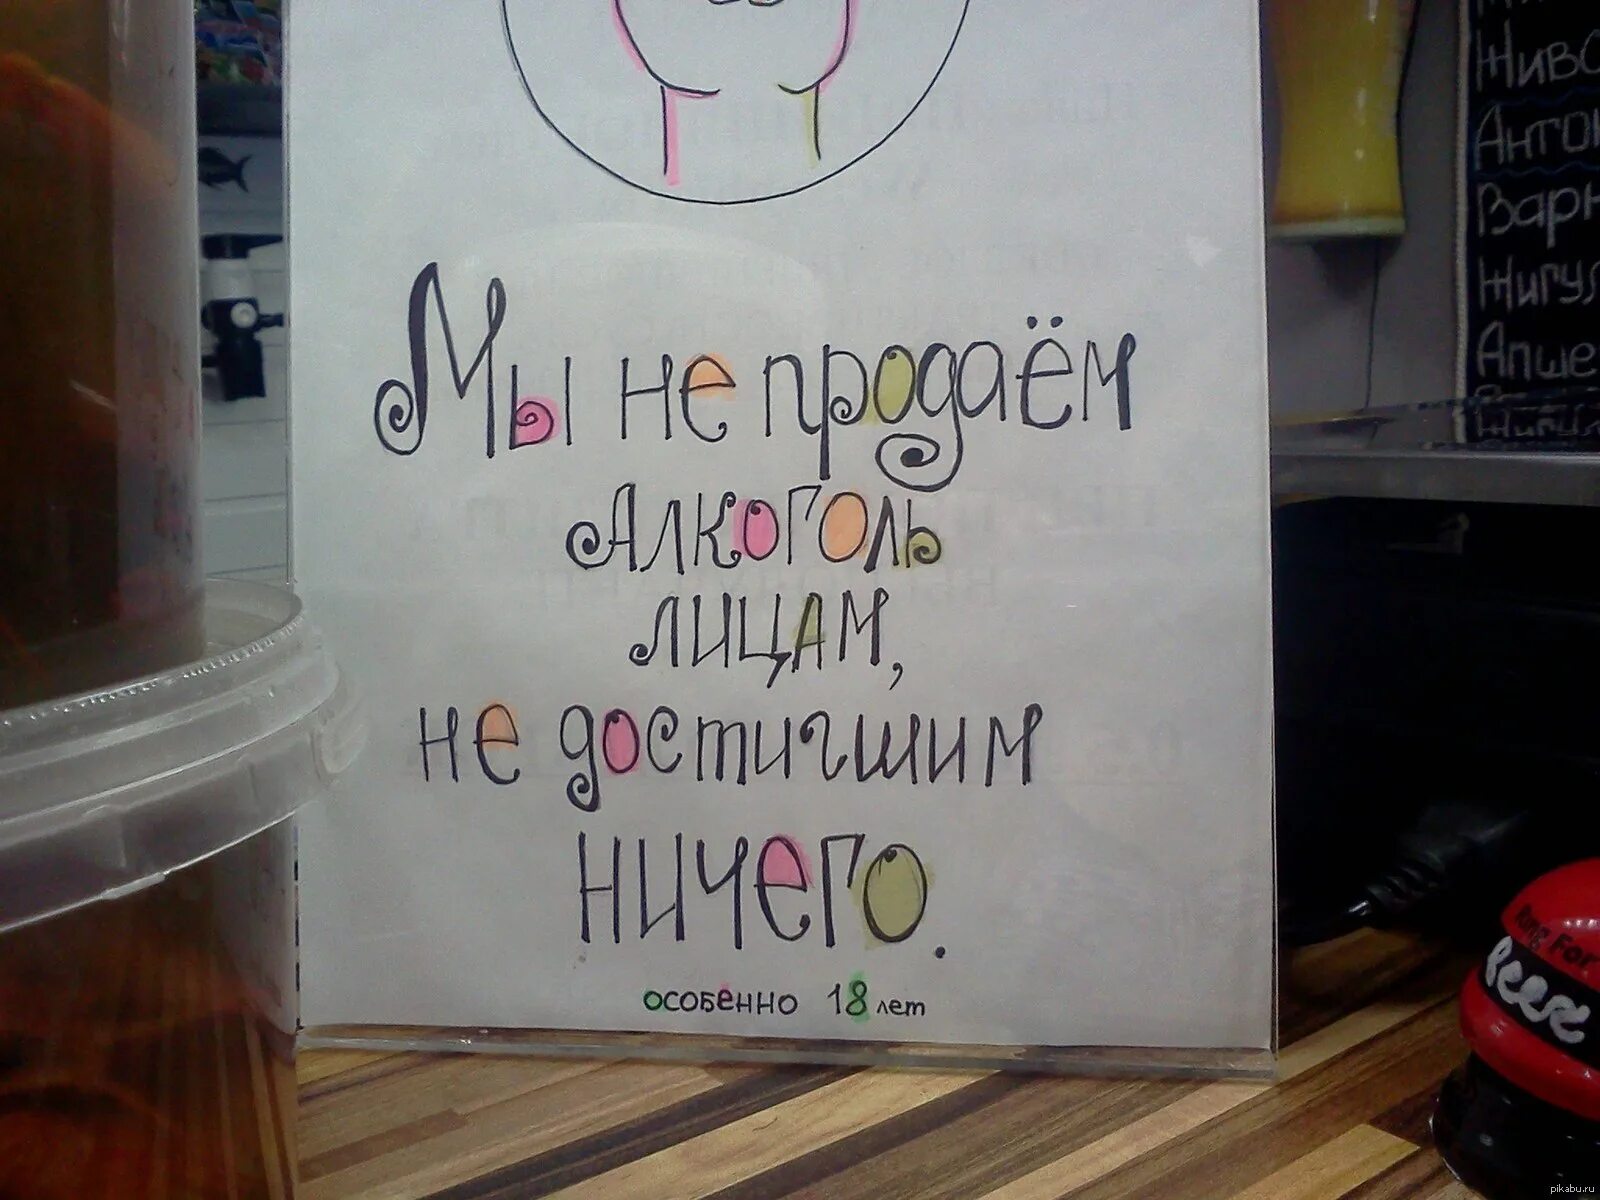 Мы не продаём
алкоголь
лицам,
не достигшим
ничего.
особенно 18 лет
Жигул
Апше
Ring For
Beer
pikabu.ru